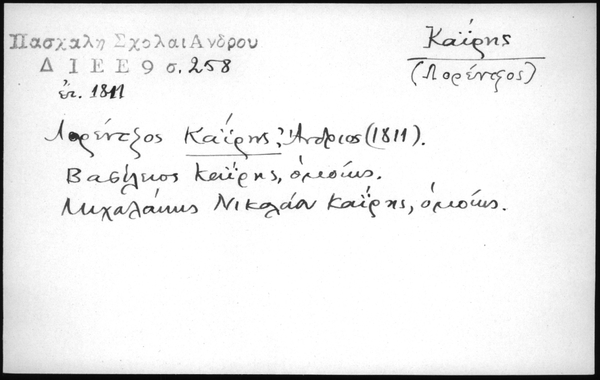 Πασχαλη Σχολαι Ανδρου
Καΐρης
Δ Ι Ε Ε 9 σ. 258
(Λορέντζος)
ἐτ. 1811
Λορέντζος Καΐρης, Ἄνδριος (1811).
Βασίλειος Καΐρης, ὁμοίως.
Μιχαλάκης Νικολάου Καΐρης, ὁμοίως.